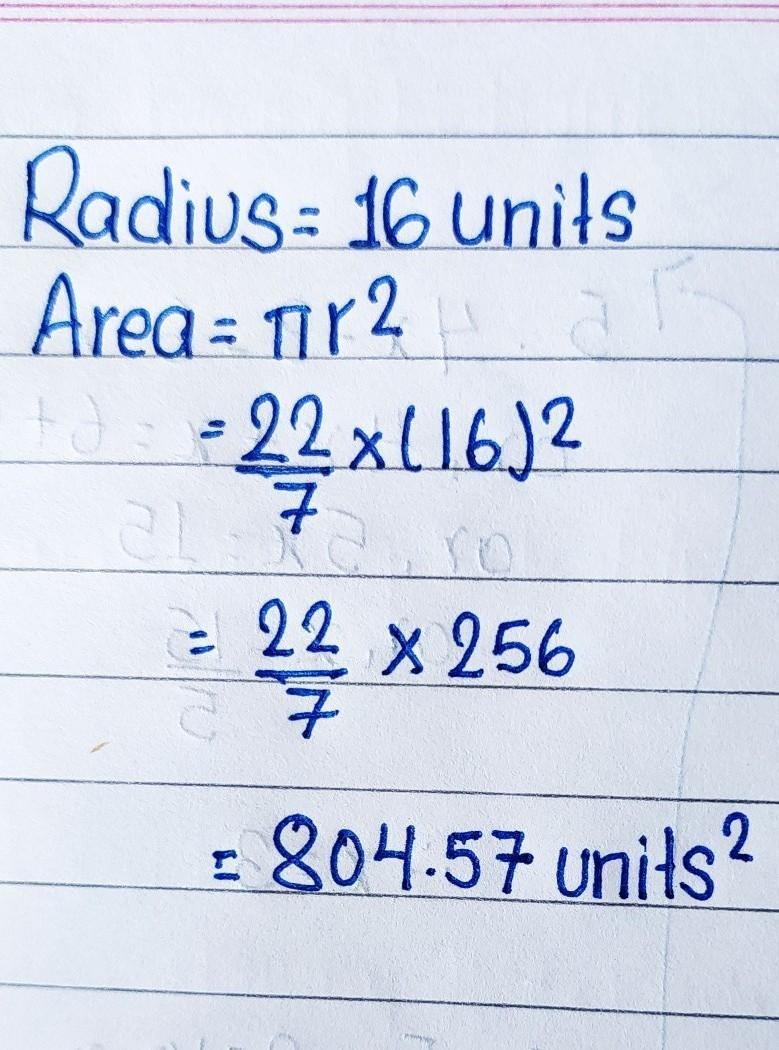 Radius = 16 units
Area = πr²
= 22/7 × (16)²
= 22/7 × 256
= 804.57 units²